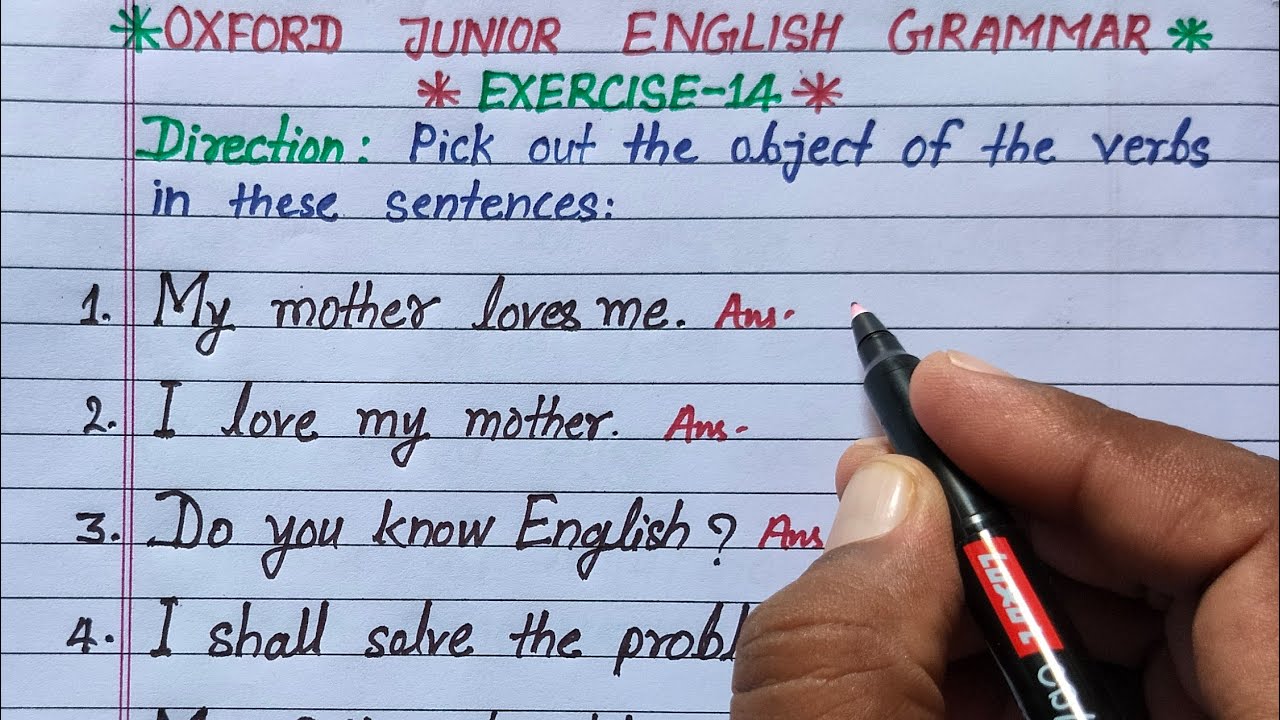 *OXFORD JUNIOR ENGLISH GRAMMAR*
* EXERCISE-14 *
Direction: Pick out the object of the verbs
in these sentences:
1. My mother loves me. Ans.
2. I love my mother. Ans-
3. Do you know English? Ans
4. I shall solve the
LUXOR